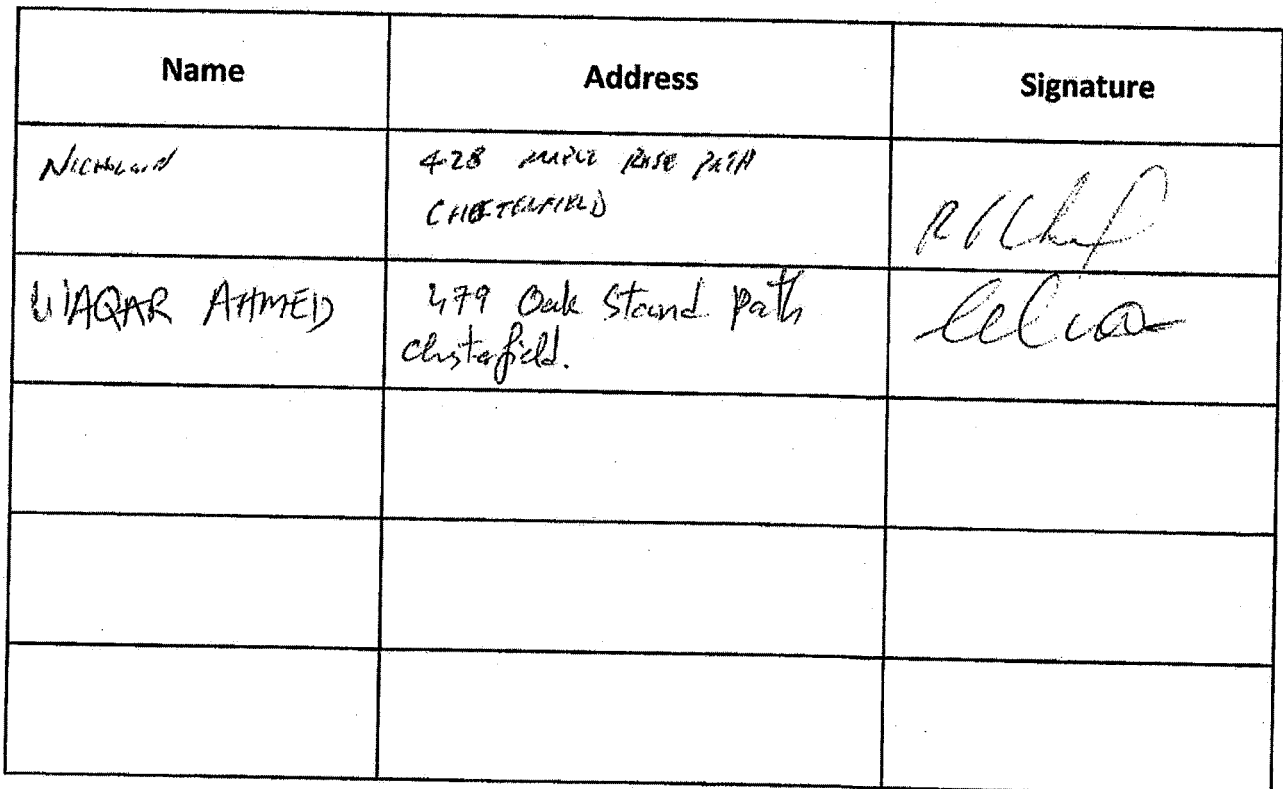 Name Address Signature
428 Maple Rise Path
CHESTERFIELD
WAQAR AHMED 479 Oak Stand Path
Chesterfield.